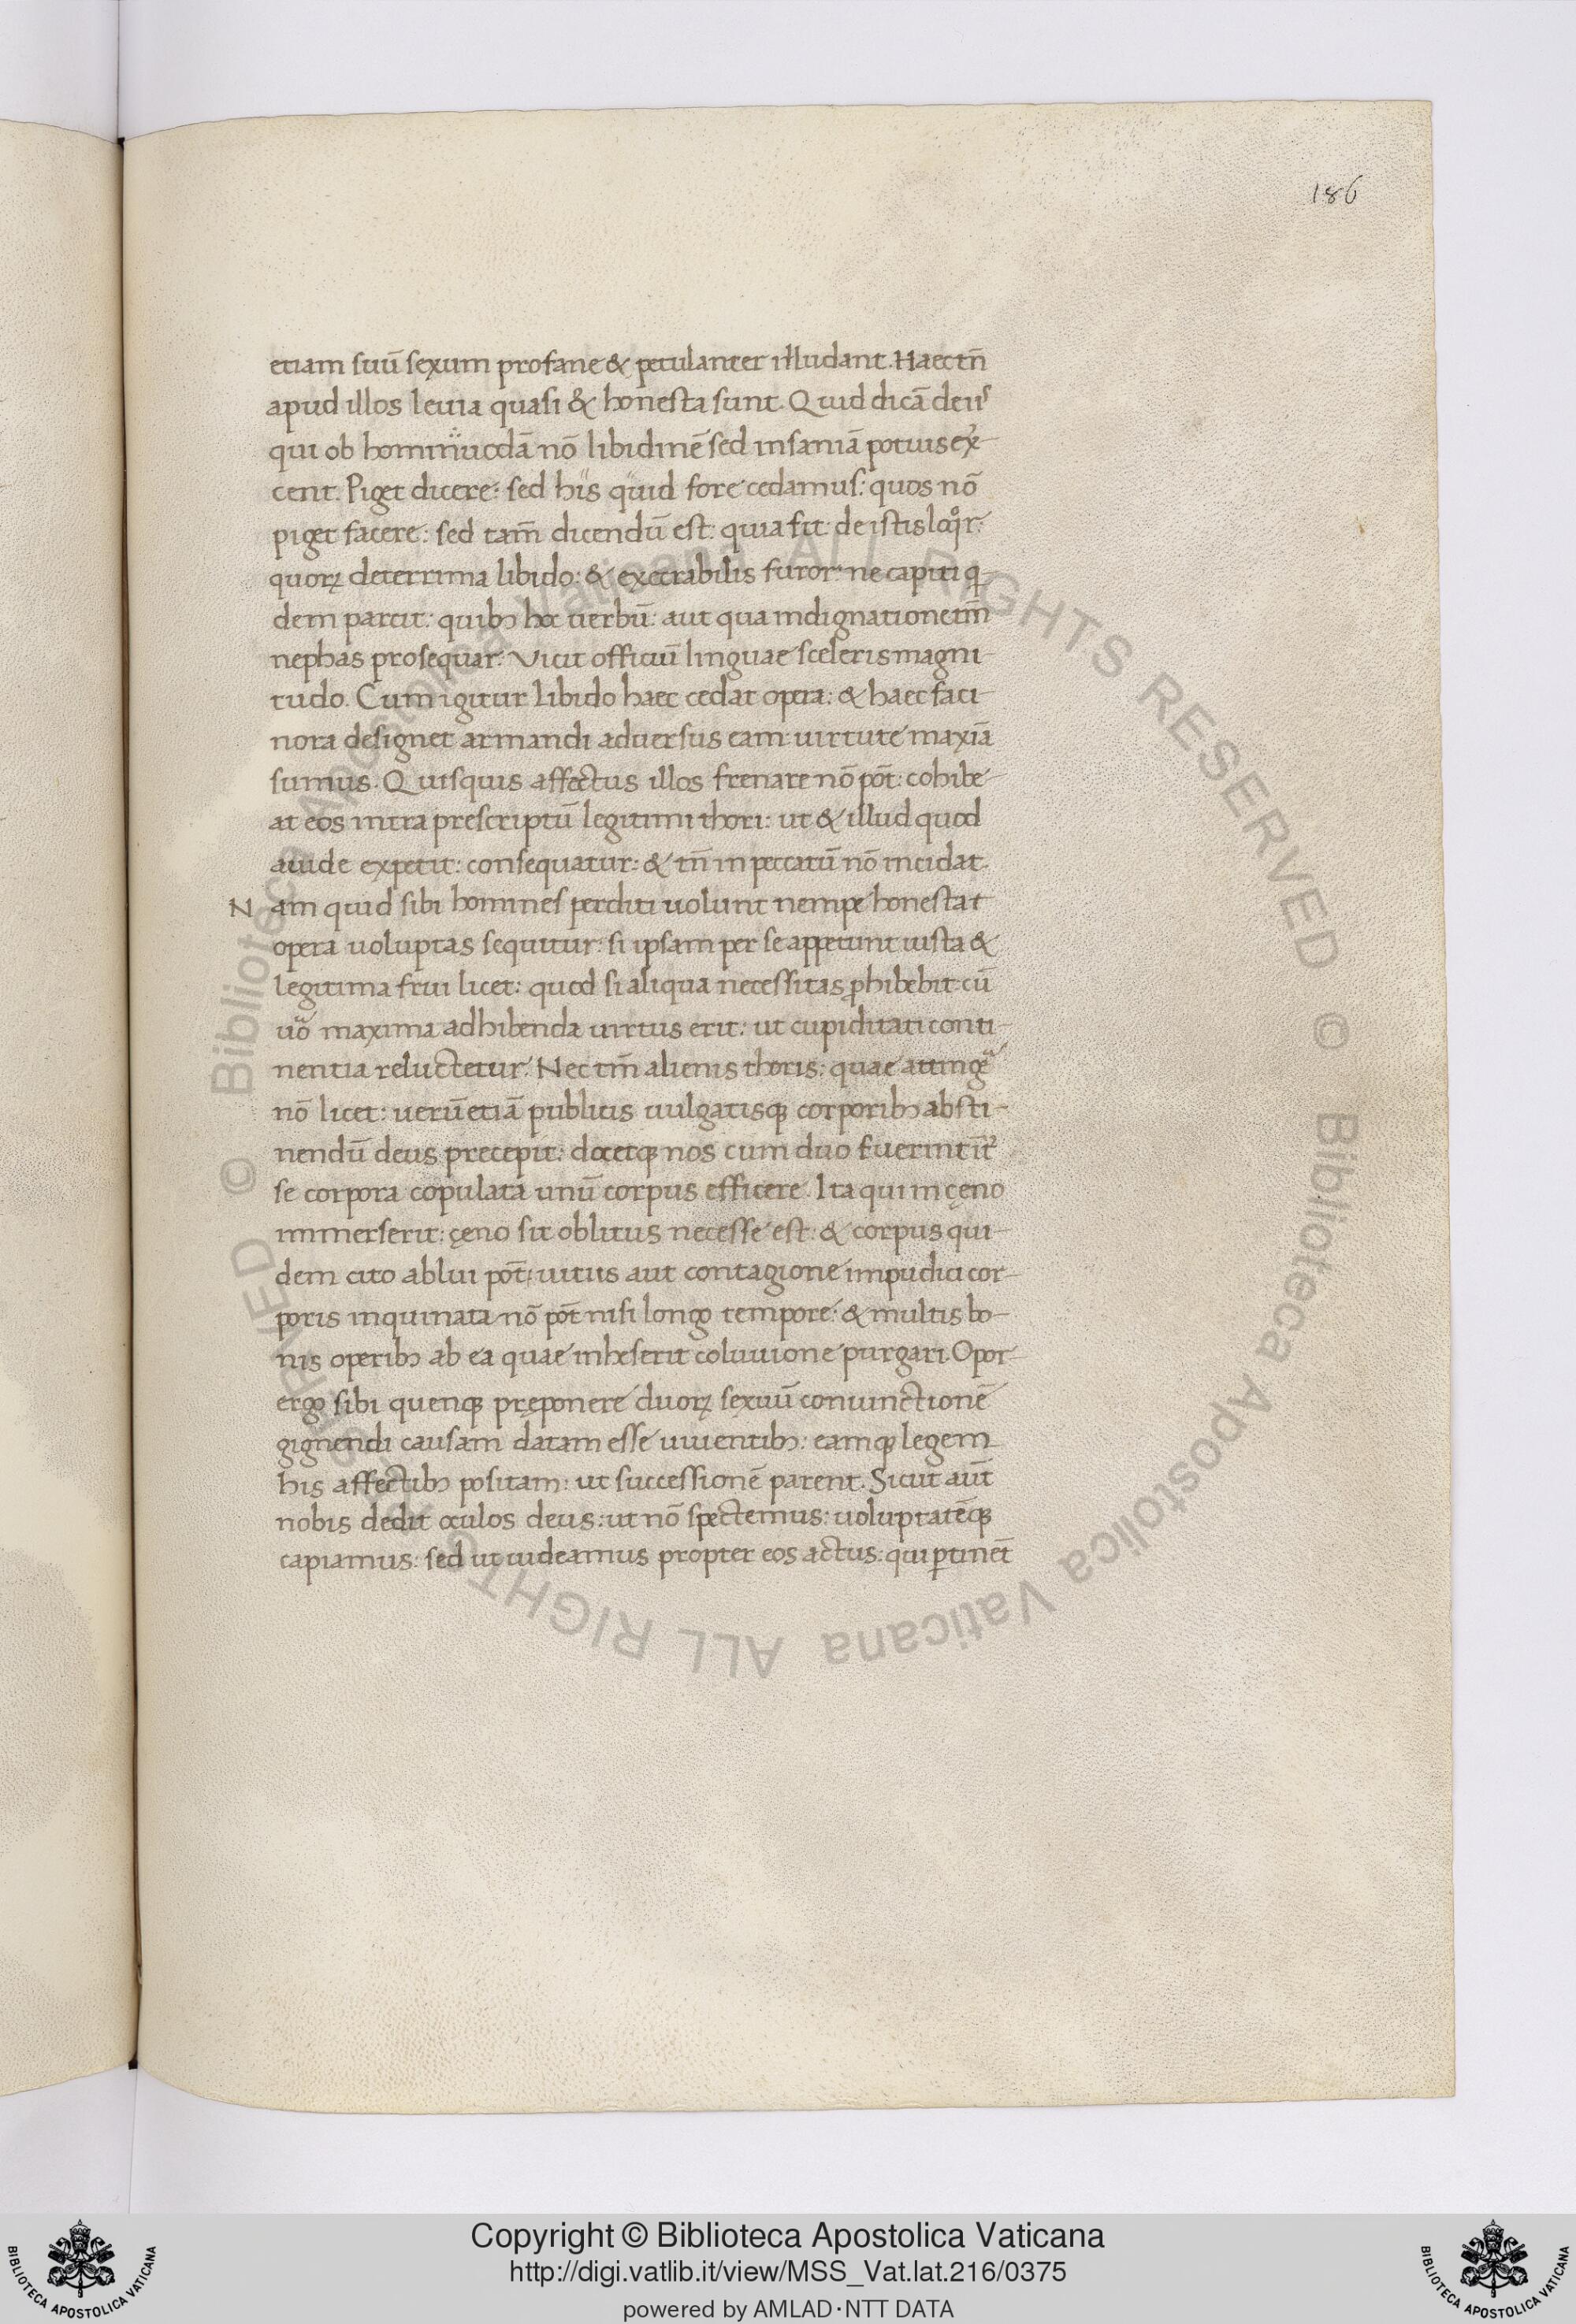 186
etiam suū sexum profane & petulanter illudant. Haec tn̄
apud illos leuia quasi & honesta sunt. Quid dicā de iis
qui ob hominii uocdā nō libidinē sed insaniā potius ex̓-
cent. Piget dicere: sed his quid fore cedamus: quos nō
piget facere: sed tam̄ dicendū est: quia fit: de istis loqͦr:
quoꝝ deterrima libido: & execrabilis furor: ne capiti q-
dem parcit: quibꝫ hoc uerbū: aut qua indignatione tm̄
nephas prosequar: Vicit officiū linguae sceleris magni-
tudo. Cum igitur libido haec cedat opera: & haec faci-
nora designet armandi aduersus eam uirtute maxīa
sumus. Quisquis affectus illos frenare nō pōt: cohibe-
at eos intra prescriptū legitimi thori: ut & illud quod
auide expetit: consequatur: & tn̄ in peccatū nō incidat.
Nam quid sibi homines perditi uolunt nempe honestat
opera uoluptas sequitur: si ipsam per se appetunt iusta &
legitima frui licet: quod si aliqua necessitas ꝓhibebit: cū
uō maxima adhibenda uirtus erit: ut cupiditati conti-
nentia reluctetur. Nec tm̄ alienis thoris: quae attingē
nō licet: uerū etiā publicis uulgatisqꝫ corporibꝫ absti-
nendū deus precepit: docetqꝫ nos cum duo fuerint īt̓
se corpora copulata unū corpus efficere. Ita qui in cęno
immerserit: cęno sit oblitus necesse est: & corpus qui-
dem cito ablui pōt: uitiis aut contagione impudici cor-
poris inquinata nō pōt nisi longo tempore: & multis bo-
nis operibꝫ ab ea quae inheserit coluuione purgari. Opor-
ergo sibi quenqꝫ pręponere duoꝝ sexuū coniunctionē
gignendi causam datam esse uiuentibꝫ: eamqꝫ legem
his affectibꝫ positam: ut successionē parent. Sicut aūt
nobis dedit oculos deus: ut nō spectemus: uoluptatēqꝫ
capiamus: sed ut uideamus propter eos actus: qui ꝑtinēt
© Biblioteca Apostolica Vaticana ALL RIGHTS RESERVED © Biblioteca Apostolica Vaticana ALL RIGHTS RESERVED
Copyright © Biblioteca Apostolica Vaticana
http://digi.vatlib.it/view/MSS_Vat.lat.216/0375
powered by AMLAD·NTT DATA
BIBLIOTECA APOSTOLICA VATICANA
BIBLIOTECA APOSTOLICA VATICANA